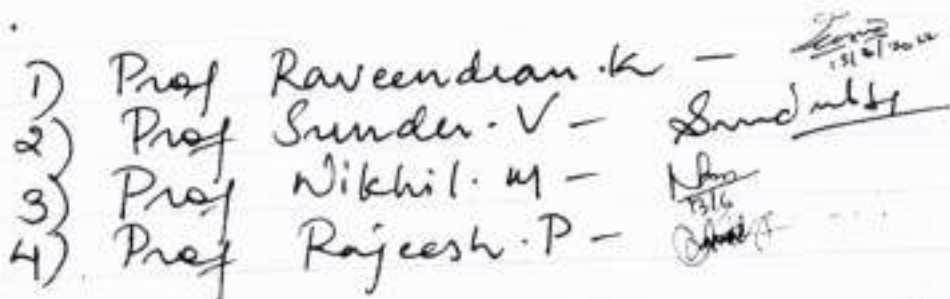 1) Prof Raveendran.K - 13/6/2022
2) Prof Sunder.V -
3) Prof Nikhil.M - 13/6
4) Prof Rajeesh.P -